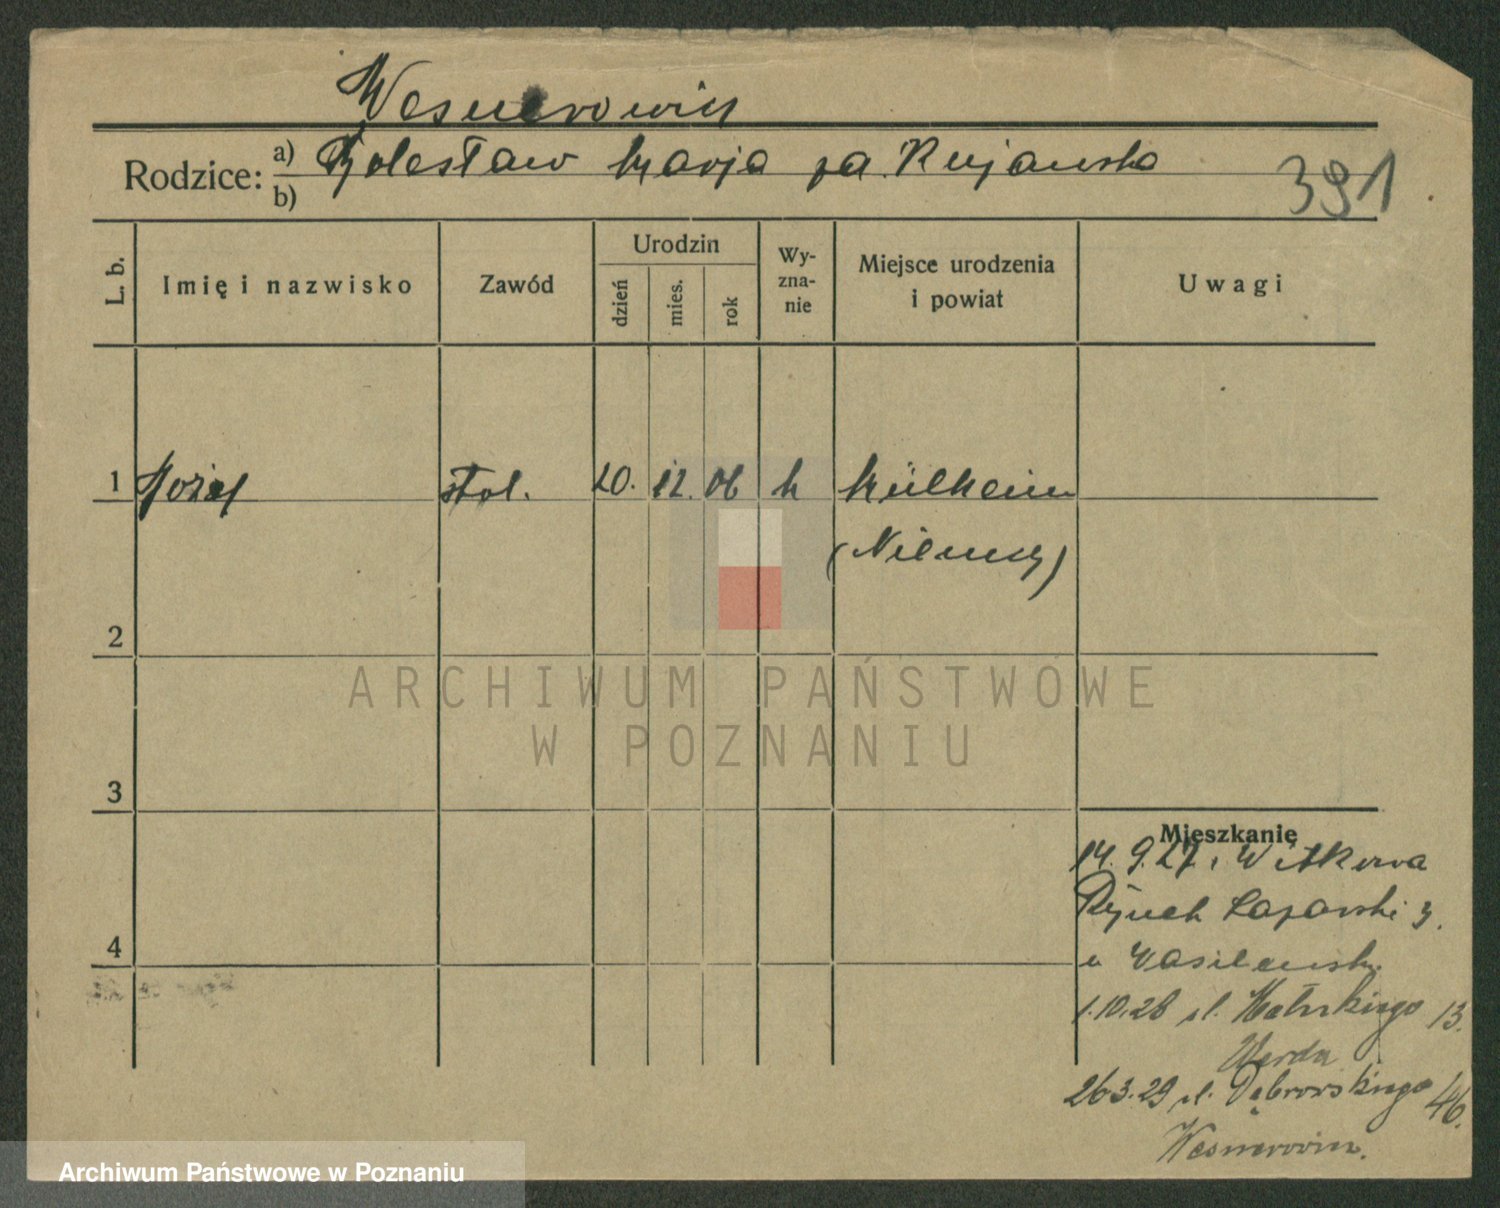 Wesnerowicz
Rodzice: a) Bolesław Marja za. Kujawska
b)
391
L. b.
Imię i nazwisko
Zawód
Urodzin
dzień
mies.
rok
Wy-
zna-
nie
Miejsce urodzenia
i powiat
Uwagi
1 Józef stol. 20. 12. 06 k Mülheim
(Niemcy)
2
ARCHIWUM PAŃSTWOWE
W POZNANIU
3
Mieszkanie
14. 9.27. Witkowa
Rynek Łazarski 3.
u Wasilewsk.
1.10.28 ul. 13.
26 3.29 ul. Dąbrowskiego 46.
Wesnerowicz.
4
Archiwum Państwowe w Poznaniu